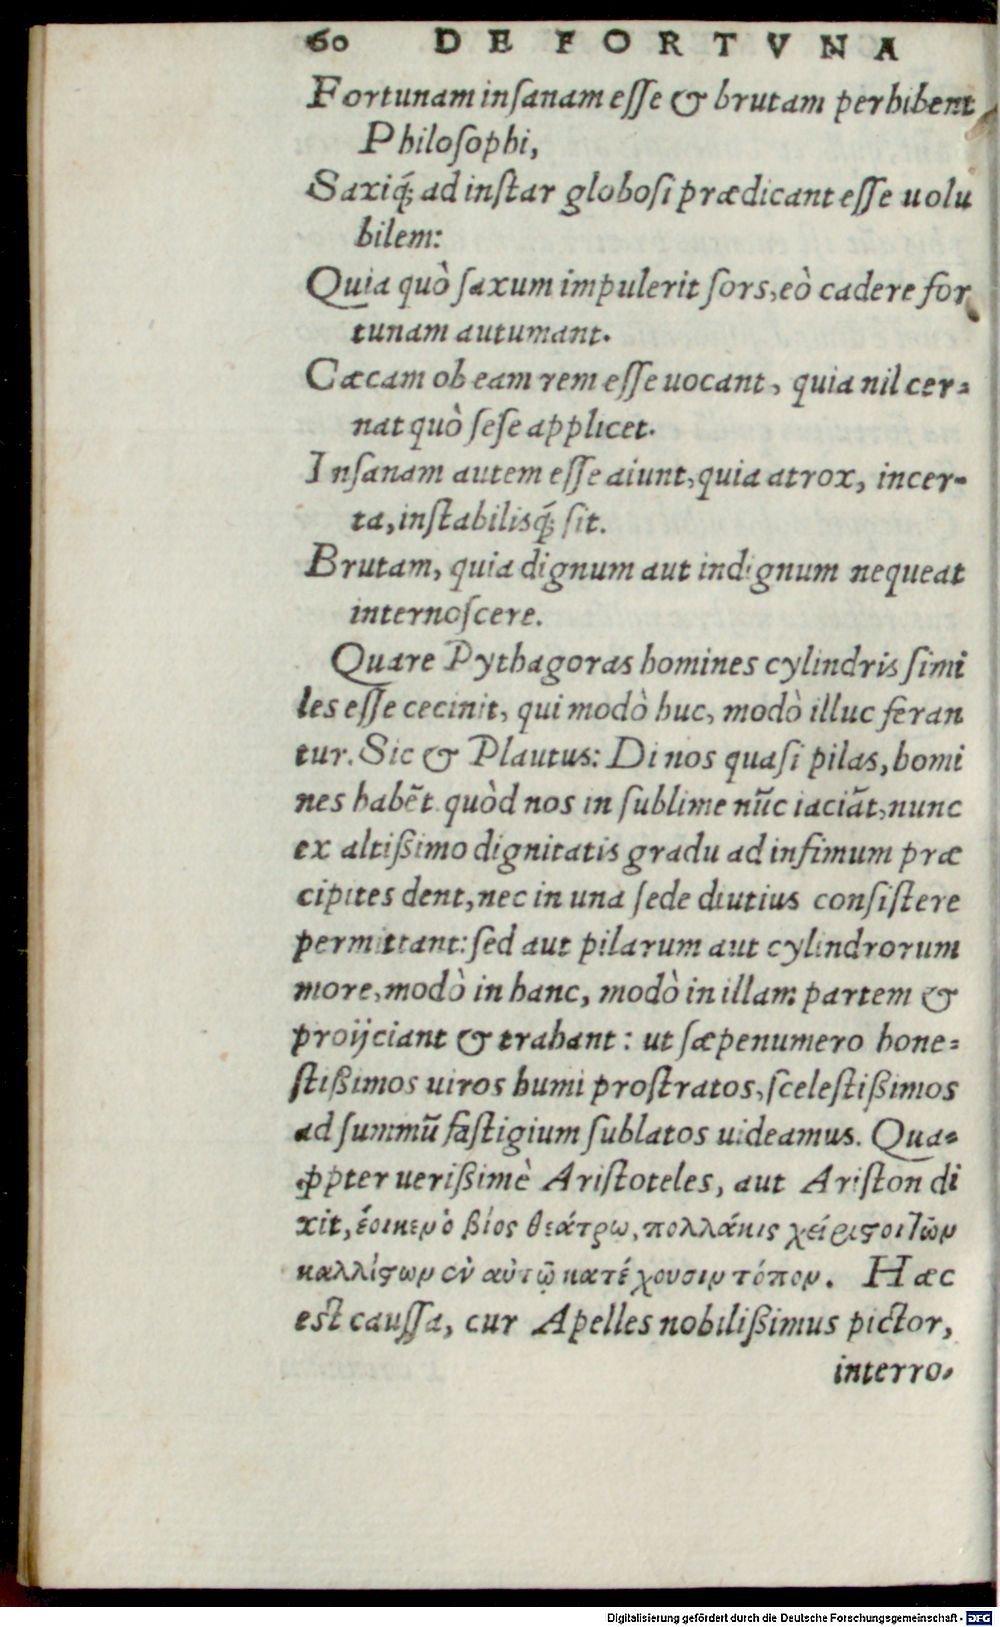 60 DE FORTVNA
Fortunam inſanam eſſe & brutam perhibent
Philoſophi,
Saxiq́; ad inſtar globoſi prædicant eſſe uolu
bilem:
Quia quò ſaxum impulerit ſors, eò cadere for
tunam autumant.
Cæcam ob eam rem eſſe uocant, quia nil cer-
nat quò ſeſe applicet.
Inſanam autem eſſe aiunt, quia atrox, incer-
ta, inſtabilisq́; ſit.
Brutam, quia dignum aut indignum nequeat
internoſcere.
Quare Pythagoras homines cylindris ſimi
les eſſe cecinit, qui modò huc, modò illuc feran
tur. Sic & Plautus: Di nos quaſi pilas, homi
nes habēt. quòd nos in ſublime nūc iaciāt, nunc
ex altißimo dignitatis gradu ad infimum præ
cipites dent, nec in una ſede diutius conſiſtere
permittant: ſed aut pilarum aut cylindrorum
more, modò in hanc, modò in illam partem &
proijciant & trahant: ut ſæpenumero hone-
ſtißimos uiros humi proſtratos, ſceleſtißimos
ad ſummū faſtigium ſublatos uideamus. Qua-
ꝓpter uerißimè Ariſtoteles, aut Ariſton di
xit, ἔοικεν ὁ βίος θεάτρω, πολλάκις χείριϛοι τῶν
καλλίϛων ἐν αὐτῷ κατέχουσιν τόπον. Hæc
eſt cauſſa, cur Apelles nobilißimus pictor,
interro-
Digitalisierung gefördert durch die Deutsche Forschungsgemeinschaft - DFG